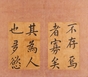 不存焉
者寡矣
其為人
也多慾